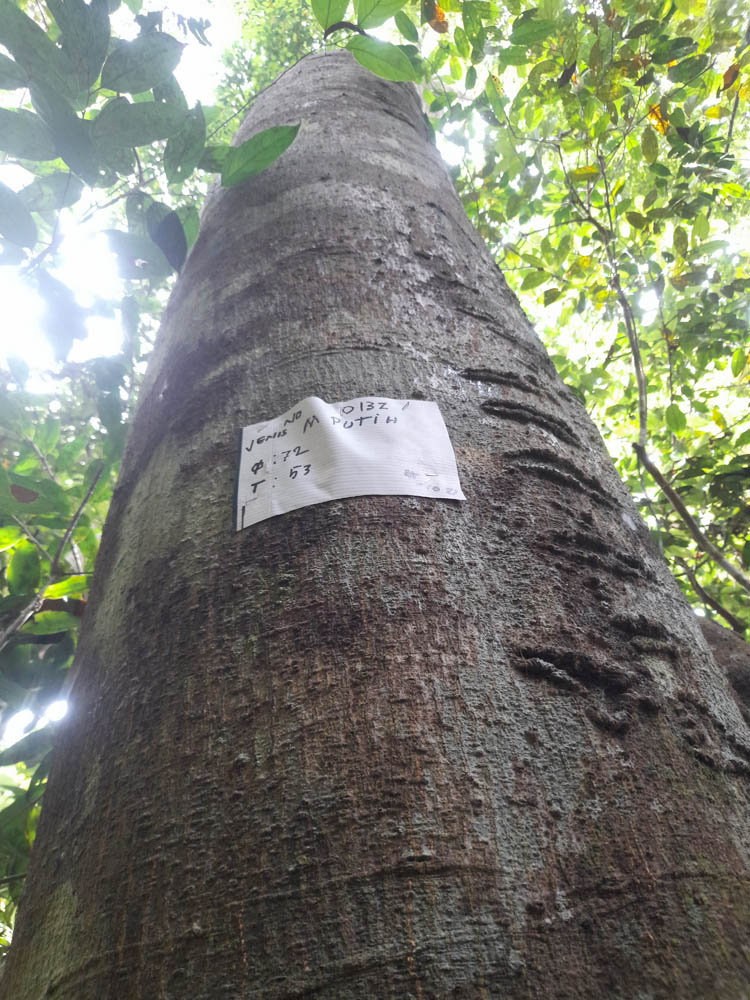 NO 10132
JENIS M PUTIH
Φ : 72
T : 53